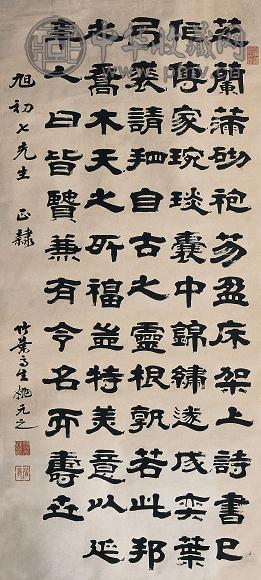 芝蘭滿砌袍笏盈床架上詩書已
傳家琬琰囊中錦繡遂成奕葉
弓裘請自古之靈根孰若此邦
之喬木天之所福豈特美意以延
年人曰皆賢兼有令名而壽
旭初七先生 正隸
竹葉亭生姚元之
中华收藏网